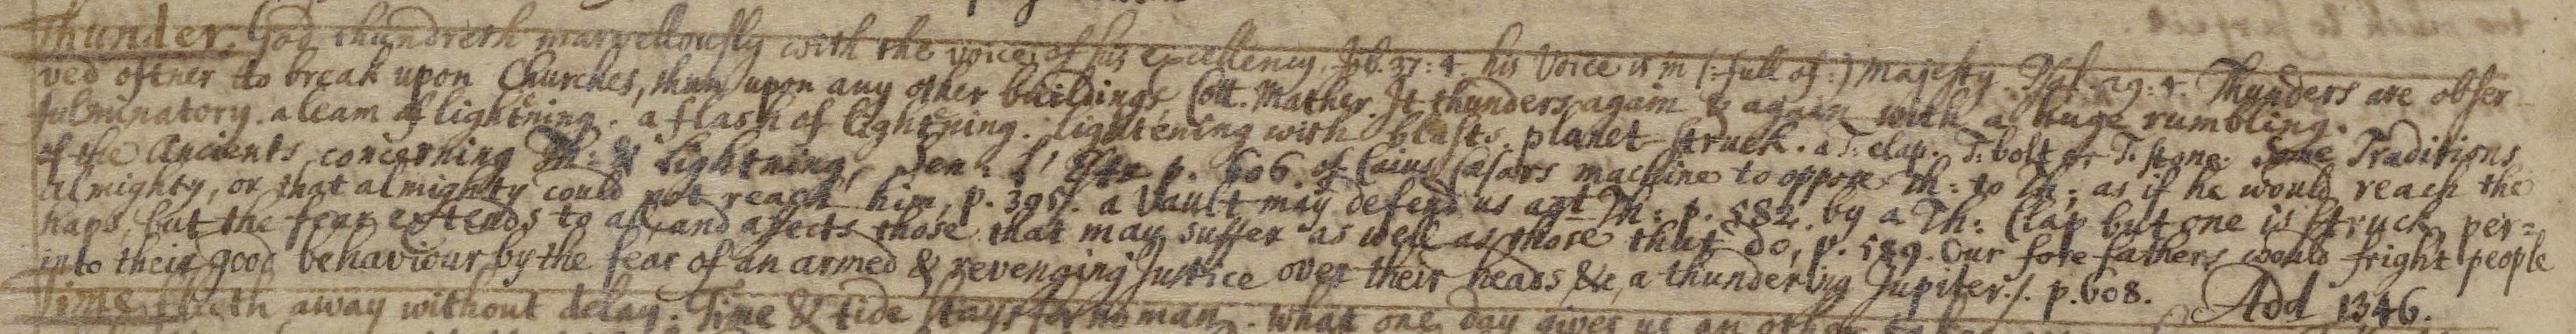 Thunder. God thundreth marvellously with the voice of his excellency. Job. 37: 4. his Voice is in (: full of :) majesty. Psal. 29: 4. Thunders are obser
ved oftner to break upon Churches, than upon any other buildings, Cott. Mather. It thunders again & again with a huge rumbling.
fulminatory. a leam of lightning. a flash of lightning. lightening with blasts. planet struck. a T: clap. T: bolt or T. stone. Some Traditions
of the Ancients concerning Th: & Lightning, Sen: p. 606. of Caius Cæsars machine to oppose Th: to Th; as if he would reach the
almighty, or that almighty could not reach him, p. 395/. a Vault may defend us agt Th: p. 582. by a Th: Clap but one is struck, per=
haps, but the fear extends to all, and affects those that may suffer as well as those that do, p. 589. Our fore fathers would fright people
into their good behaviour by the fear of an armed & revenging Justice over their heads &c, a thundering Jupiter./. p. 608. Add 1346.
Time fleeth away without delay. Time & tide stays for no man. What one day gives us an other